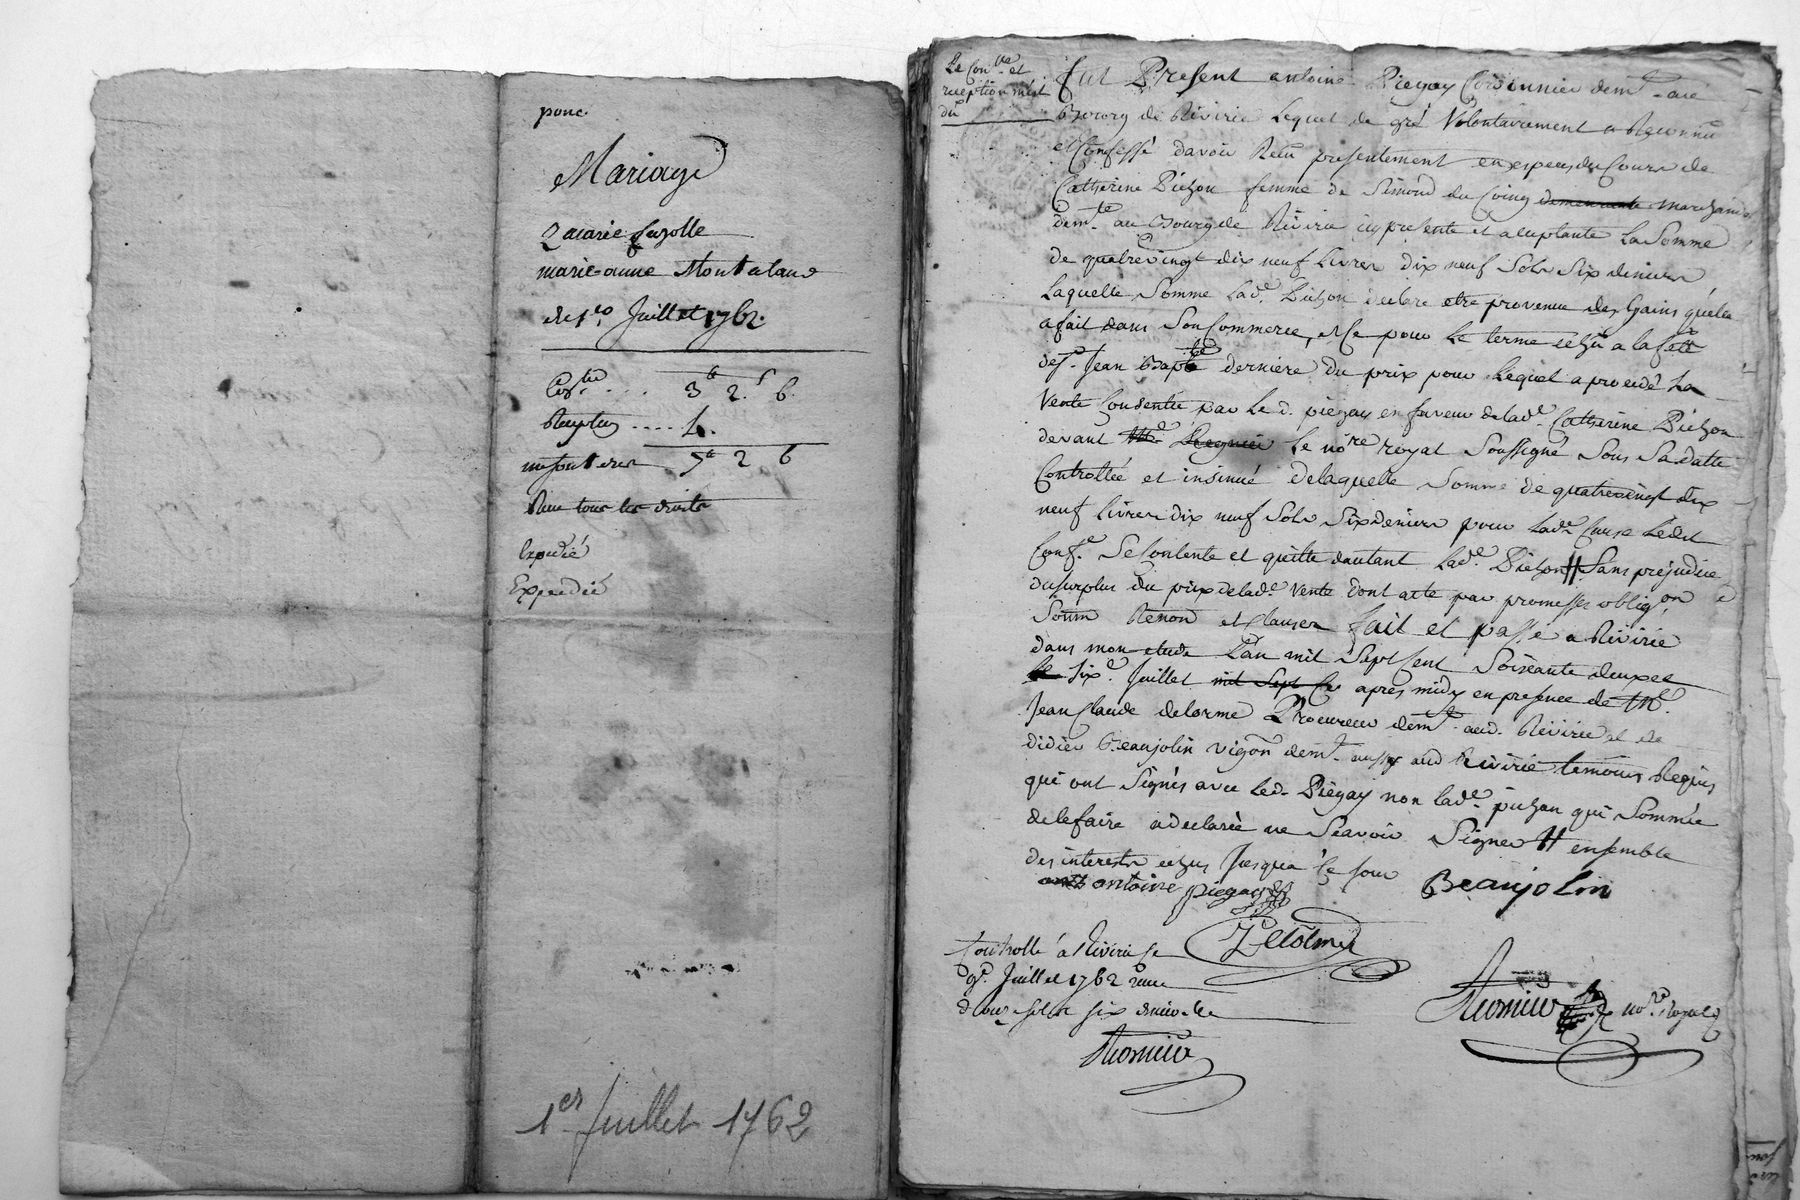 pour
Mariage
Zacarie fayolle
marie-anne Montaland
du 1er Juillet 1762.
3 2 6
4
7 2 6
Reçu tous les droits
Expedié
Expedié
1er Juillet 1762
Le Con.lle et
reception m'est
du
fut Présent antoine Piegay Cordonnier demt au
Bourg de Riverie Lequel de gré Volontairement a Reconnu
et Confessé davoir Reçu presentement en especes du Cours de
Catherine Pichon femme de Simond du Coing demeurante marchand
demte au Bourg de Riverie icy presente et acceptante La Somme
de quatrevingt dix neuf Livres dix neuf Sols Six deniers
Laquelle Somme Lade. Pichon declare etre provenue des Gains quelle
a fait dans Son Commerce, et Ce pour Le terme echu a la fette
de St. Jean Baptte derniere du prix pour Lequel a procedé La
Vente Consentie par Led. piegay en faveur de lade. Catherine Pichon
devant Me. Le nore royal Soussigné Sous Sa datte
Controllée et insinué de laquelle Somme de quatrevingt dix
neuf Livres dix neuf Sols Six deniers pour lade Cause Ledit
Conft. Se Contente et quitte dautant Lade. Pichon # Sans prejudice
du surplus du prix de lade. Vente dont acte par promesses obligon
Soum Renon et Clauses fait et passé a Riverie
dans mon etude L'an mil Sept Cent Soixante deux et
le Six.e Juillet mil Sept Ce apres midy en presence de Me.
Jean Claude delorme Procureur demt. aud. Riverie et de
didier Beaujolin vigon demt. aussy aud Riverie temoins Requis
qui ont Signés avec Led. Piegay non lade. pichon qui Sommée
de le faire a declarée ne Scavoir Signer # ensemble
des interets echus Jusqua Ce Jour
antoine piegay
Beaujolin
Delorme
Controllé á Riverie le
9e. Juillet 1762 reçu
douze sols six deniers
nore. Royal